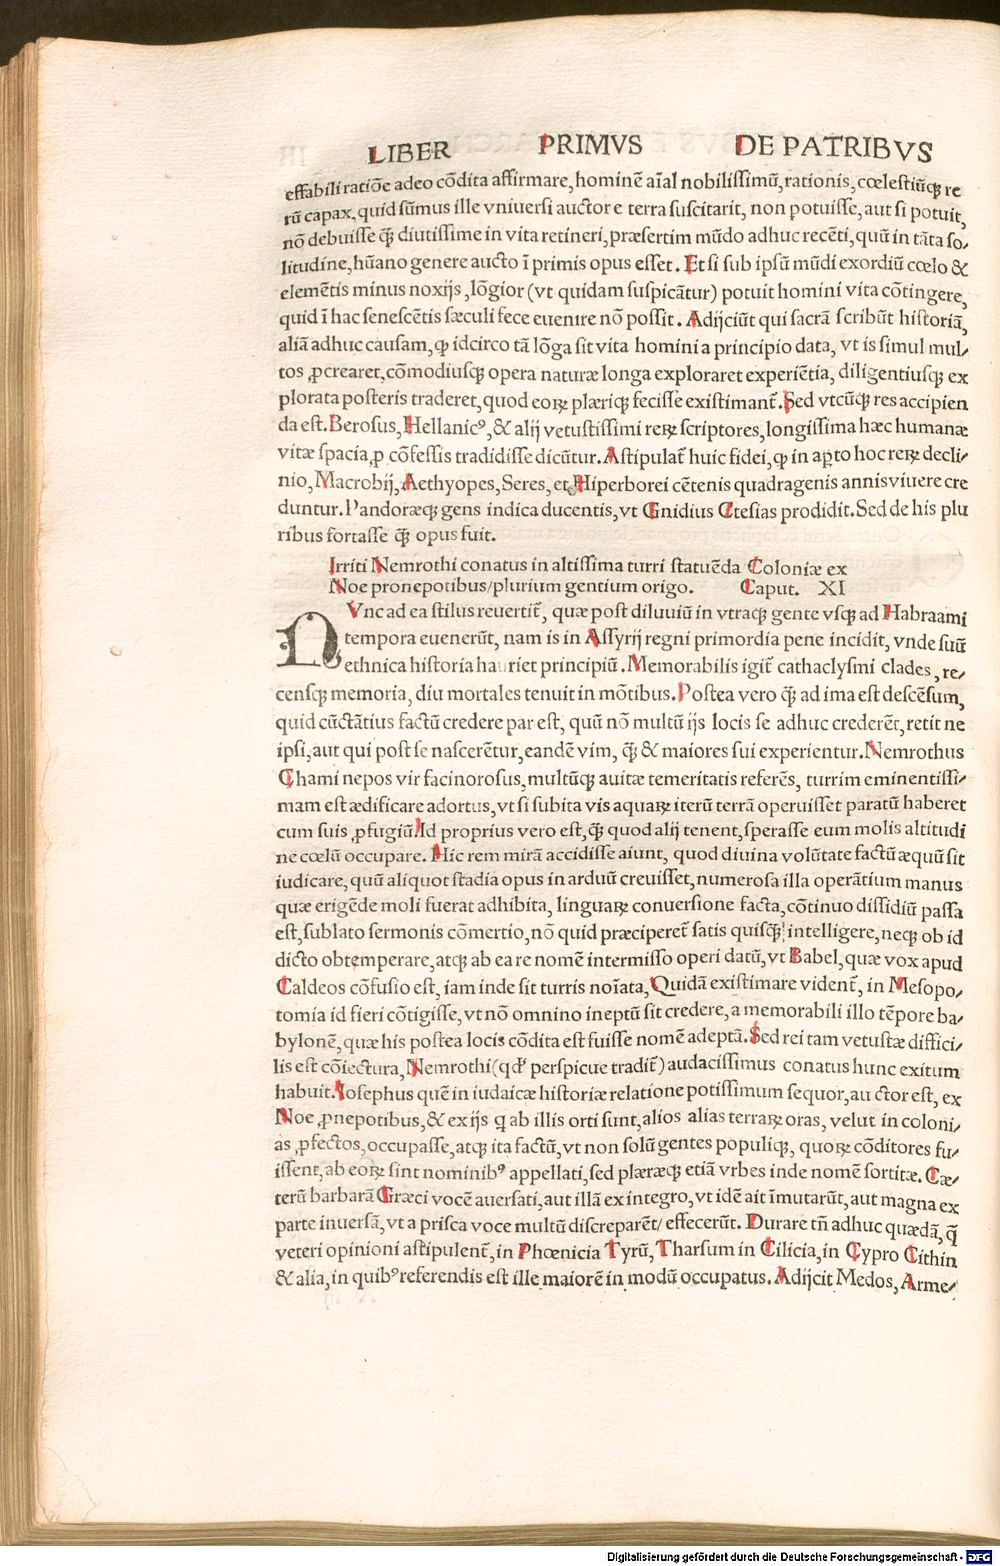 LIBER PRIMVS DE PATRIBVS
effabili ratiõe adeo cõdita affirmare, hominẽ aĩal nobilissimũ, rationis, cœlestiũqꝫ re
rũ capax, quid sũmus ille vniuersi auctor e terra suscitarit, non potuisse, aut si potuit,
nõ debuisse qꝫ̃ diutissime in vita retineri, præsertim mũdo adhuc recẽti, quũ in tãta so⸗
litudine, hũano genere aucto ĩ primis opus esset. Et si sub ipsũ mũdi exordiũ cœlo &
elemẽtis minus noxijs, lõgior (vt quidam suspicãtur) potuit homini vita cõtingere,
quid ĩ hac senescẽtis sæculi fece euenire nõ possit. Adijciũt qui sacrã scribũt historiã,
aliã adhuc causam, ꝙ idcirco tã lõga sit vita homini a principio data, vt is simul mul⸗
tos ꝓcrearet, cõmodiusqꝫ opera naturæ longa exploraret experiẽtia, diligentiusqꝫ ex
plorata posteris traderet, quod eoꝝ plæriqꝫ fecisse existimant̃. Sed vtcũqꝫ res accipien
da est. Berosus, Hellanicꝰ, & alij vetustissimi reꝝ scriptores, longissima hæc humanæ
vitæ spacia, ꝓ cõfessis tradidisse dicũtur. Astipulat̃ huic fidei, ꝙ in aꝑto hoc reꝝ decli⸗
nio, Macrobij, Aethyopes, Seres, et Hiperborei cẽtenis quadragenis annis viuere cre
duntur. Pandoræqꝫ gens indica ducentis, vt Gnidius Ctesias prodidit. Sed de his plu
ribus fortasse qꝫ̃ opus fuit.
Irriti Nemrothi conatus in altissima turri statuẽda Coloniæ ex
Noe pronepotibus/plurium gentium origo. Caput. XI
NVnc ad ea stilus reuertit̃, quæ post diluuiũ in vtraqꝫ gente vsqꝫ ad Habraami
tempora euenerũt, nam is in Assyrij regni primordia pene incidit, vnde suũ
ethnica historia hauriet principiũ. Memorabilis igit̃ cathaclysmi clades, re⸗
censqꝫ memoria, diu mortales tenuit in mõtibus. Postea vero qꝫ̃ ad ima est descẽsum,
quid cũctãtius factũ credere par est, quũ nõ multũ ijs locis se adhuc crederẽt, retit ne
ipsi, aut qui post se nascerẽtur, eandẽ vim, qꝫ̃ & maiores sui experientur. Nemrothus
Chami nepos vir facinorosus, multũqꝫ auitæ temeritatis referẽs, turrim eminentissi⸗
mam est ædificare adortus, vt si subita vis aquaꝝ iterũ terrã operuisset paratũ haberet
cum suis ꝓfugiũ. Id proprius vero est, qꝫ̃ quod alij tenent, sperasse eum molis altitudi
ne cœlũ occupare. Hic rem mirã accidisse aiunt, quod diuina volũtate factũ æquũ sit
iudicare, quũ aliquot stadia opus in arduũ creuisset, numerosa illa operãtium manus
quæ erigẽde moli fuerat adhibita, linguaꝝ conuersione facta, cõtinuo dissidiũ passa
est, sublato sermonis cõmertio, nõ quid præciperet̃ satis quisqꝫ̃ intelligere, neqꝫ ob id
dicto obtemperare, atqꝫ ab ea re nomẽ intermisso operi datũ, vt Babel, quæ vox apud
Caldeos cõfusio est, iam inde sit turris noĩata, Quidã existimare vident̃, in Mesopo⸗
tomia id fieri cõtigisse, vt nõ omnino ineptũ sit credere, a memorabili illo tẽpore ba⸗
bylonẽ, quæ his postea locis cõdita est fuisse nomẽ adeptã. Sed rei tam vetustæ diffici⸗
lis est cõiectura, Nemrothi (qđ perspicue tradit̃) audacissimus conatus hunc exitum
habuit. Iosephus quẽ in iudaicæ historiæ relatione potissimum sequor, auctor est, ex
Noe ꝓnepotibus, & ex ijs q ab illis orti sunt, alios alias terraꝝ oras, velut in coloni⸗
as ꝓfectos, occupasse, atqꝫ ita factũ, vt non solũ gentes populiqꝫ, quoꝝ cõditores fu⸗
issent, ab eoꝝ sint nominibꝰ appellati, sed plæræqꝫ etiã vrbes inde nomẽ sortitæ. Cæ⸗
terũ barbarã Græci vocẽ auersati, aut illã ex integro, vt idẽ ait ĩmutarũt, aut magna ex
parte inuersã, vt a prisca voce multũ discreparẽt/ effecerũt. Durare tñ adhuc quædã, q̃
veteri opinioni astipulent̃, in Phœnicia Tyrũ, Tharsum in Cilicia, in Cypro Cithin
& alia, in quibꝰ referendis est ille maiorẽ in modũ occupatus. Adijcit Medos, Arme⸗
Digitalisierung gefördert durch die Deutsche Forschungsgemeinschaft - DFG